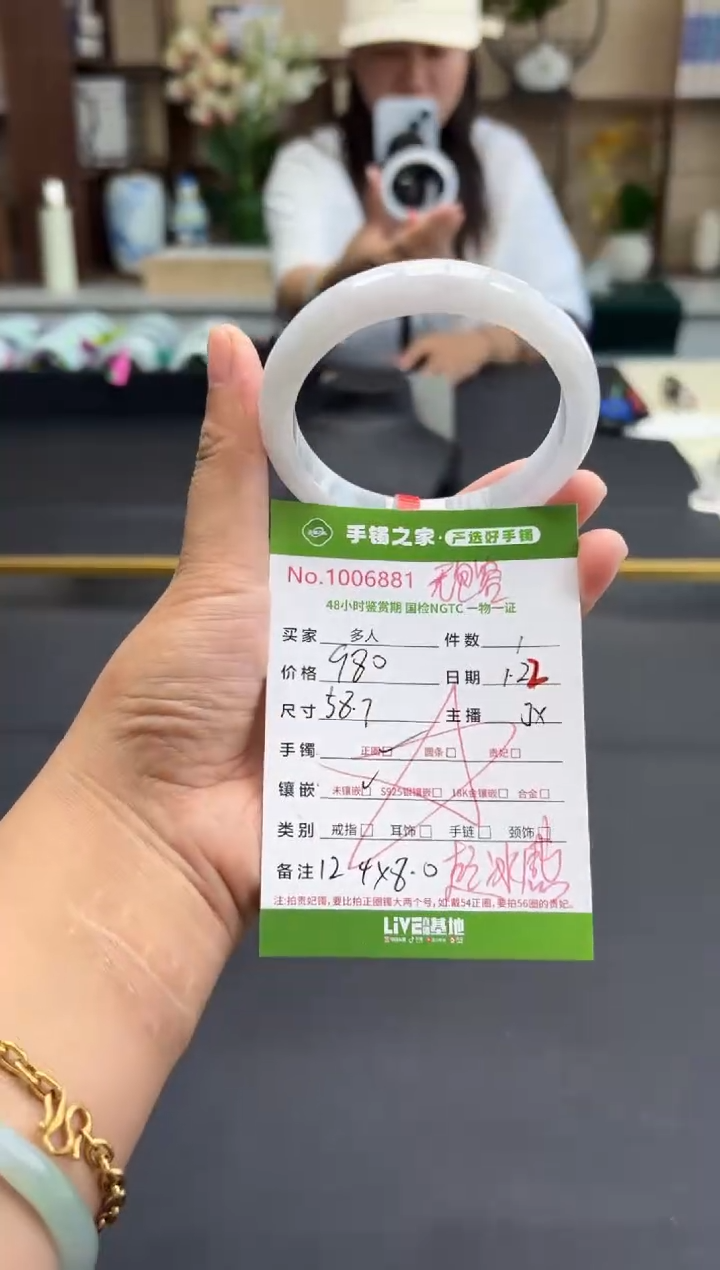 手镯之家·严选好手镯
No.1006881 无包容
48小时鉴赏期 国检NGTC 一物一证
买家 多人 件数 1
价格 980 日期 1.22
尺寸 58.7 主播 JX
手镯 正圈 圆条 贵妃
镶嵌 未镶嵌 S925银镶嵌 18K金镶嵌 合金
类别 戒指 耳饰 手链 颈饰
备注 12.4X8.0 起冰感
注:拍贵妃镯,要比拍正圈镯大两个号,如:戴54正圈,要拍56圈的贵妃。
LiVE 基地